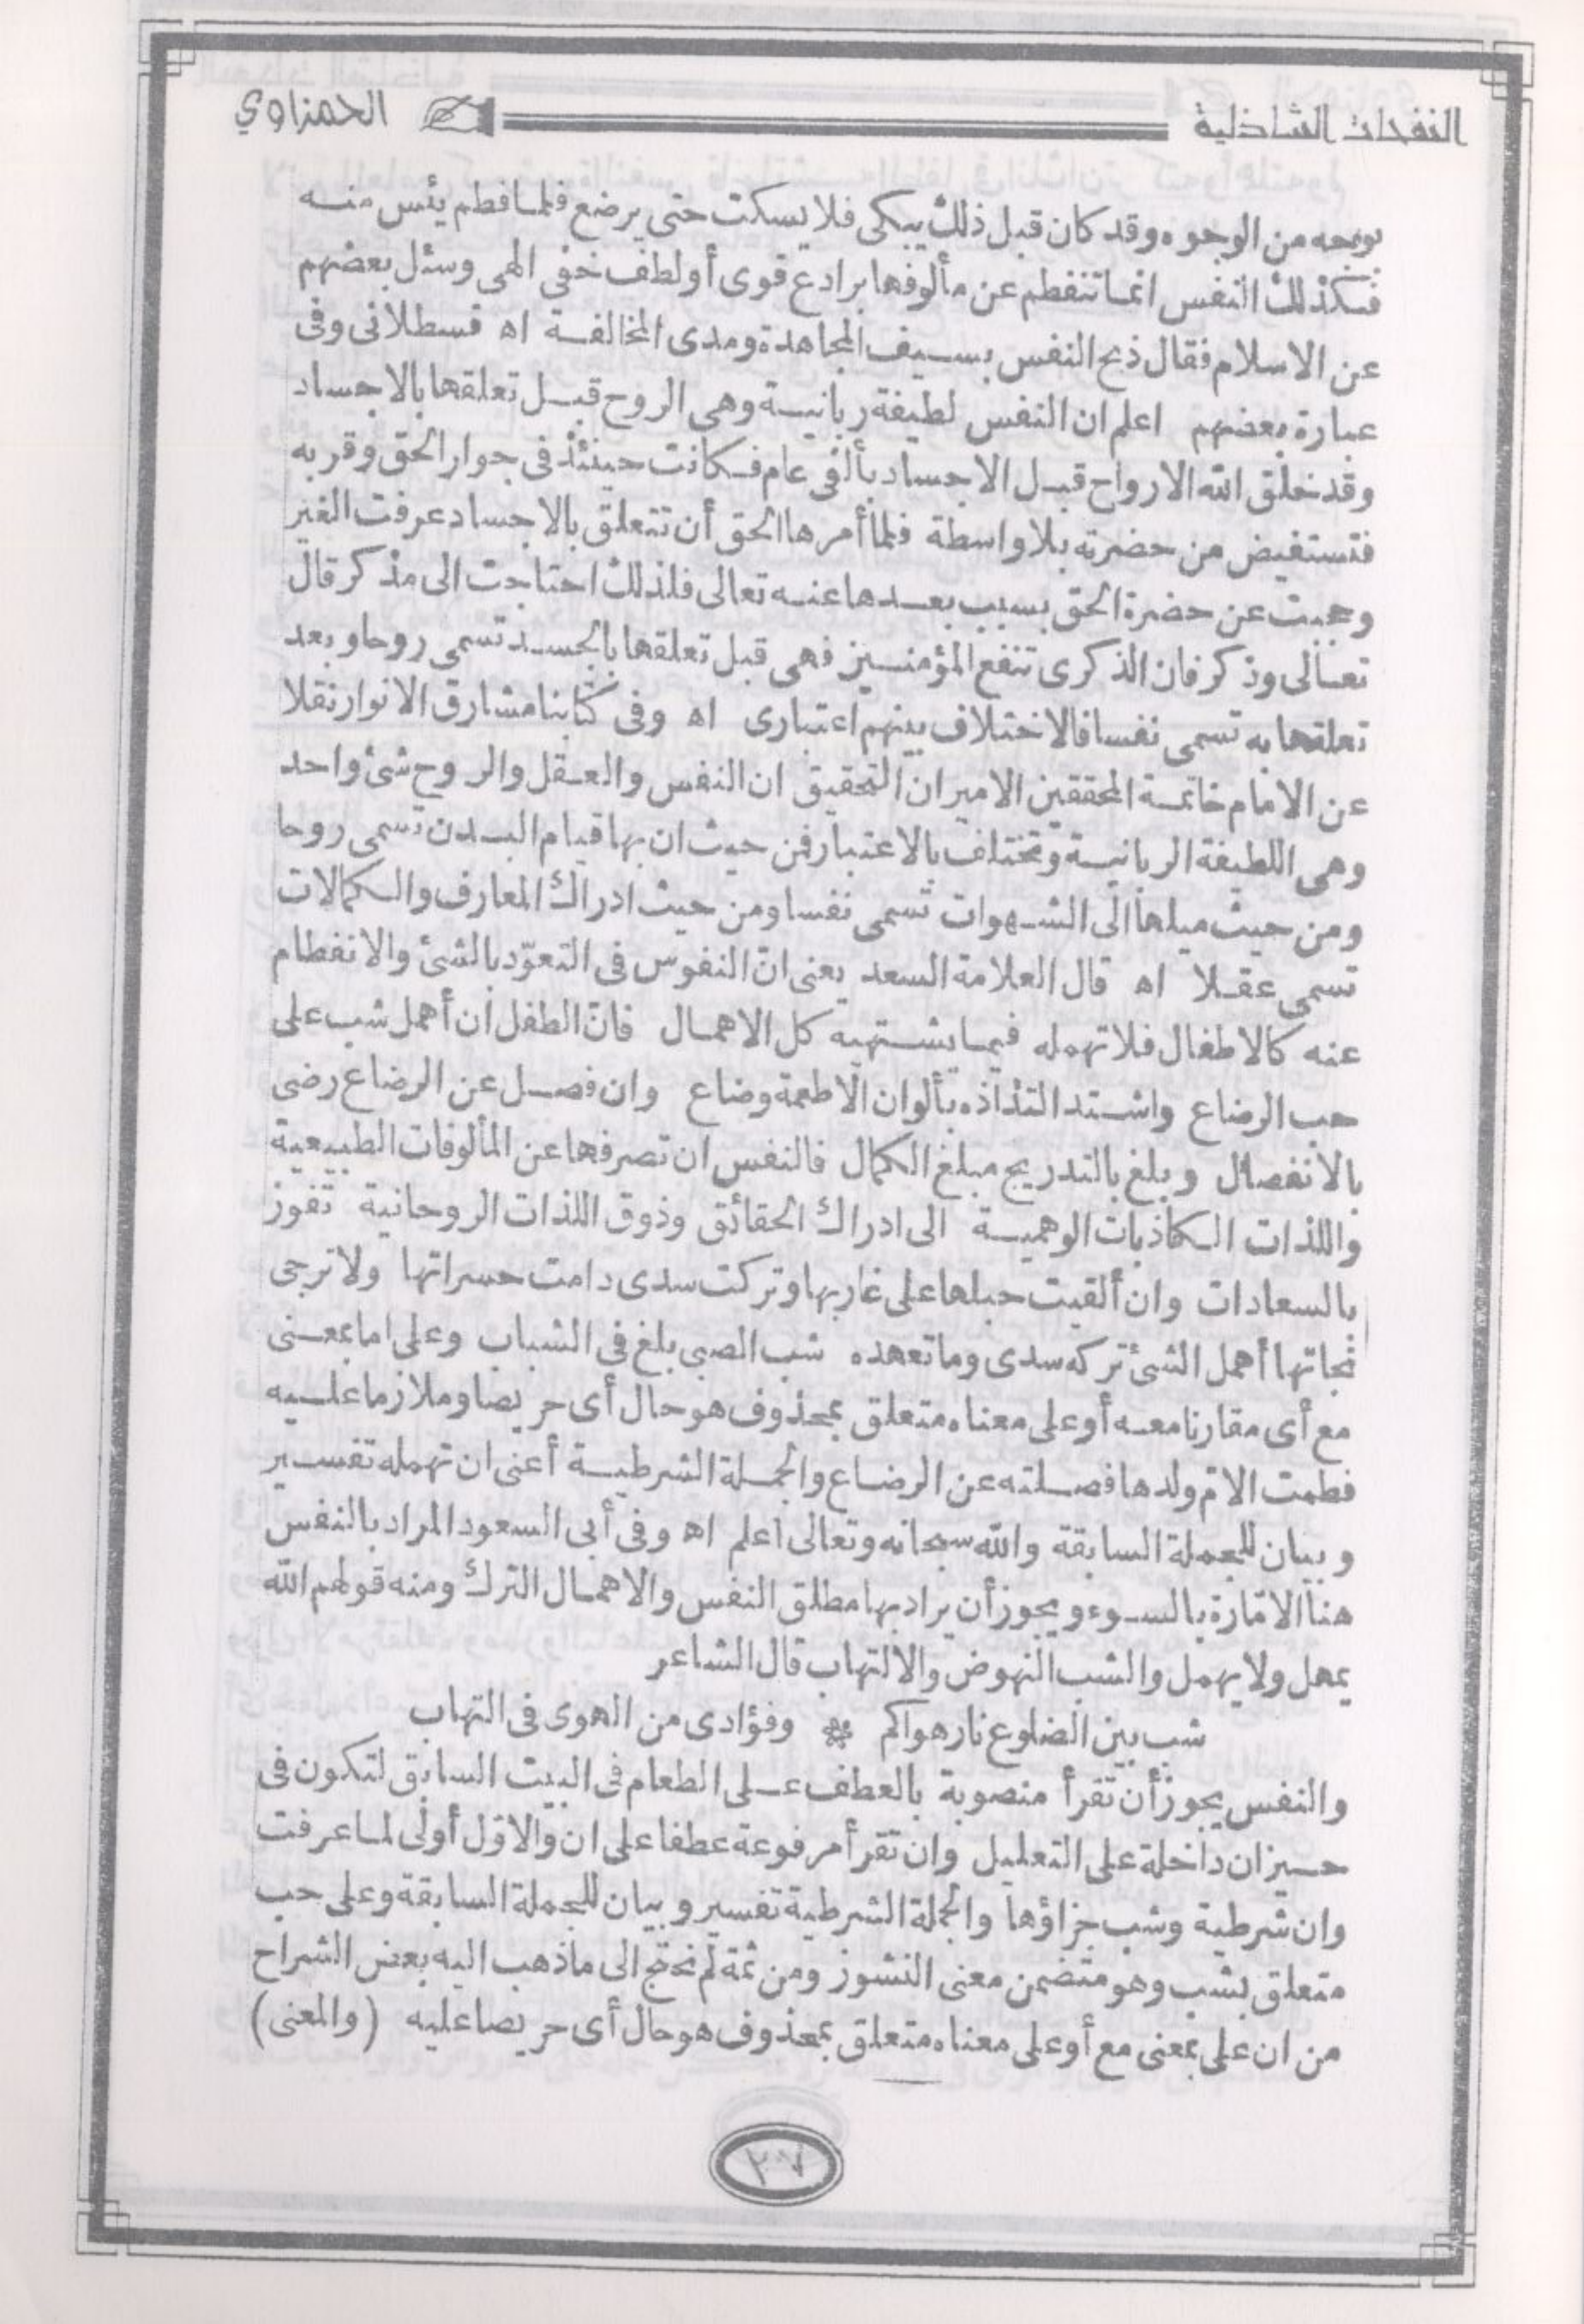 النفحات الشاذلية
الحمزاوي
بوجه من الوجوه وقد كان قبل ذلك يبكى فلا يسكت حتى يرضع فلما فطم يئس منه
فكذلك النفس انما تنفطم عن مألوفها برادع قوى أو لطف خفى الهى وسئل بعضهم
عن الاسلام فقال ذبح النفس بسيف المجاهدة ومدى المخالفة اه قسطلانى وفى
عبارة بعضهم اعلم ان النفس لطيفة ربانية وهى الروح قبل تعلقها بالاجساد
وقد خلق الله الارواح قبل الاجساد بألفى عام فكانت حينئذ فى جوار الحق وقربه
فتستفيض من حضرته بلا واسطة فلما أمرها الحق أن تتعلق بالاجساد عرفت الغير
وحجبت عن حضرة الحق بسبب بعدها عنه تعالى فلذلك احتاجت الى مذكر قال
تعالى وذكر فان الذكرى تنفع المؤمنين فهى قبل تعلقها بالجسد تسمى روحا وبعد
تعلقها به تسمى نفسا فالاختلاف بينهم اعتبارى اه وفى كتابنا مشارق الانوار نقلا
عن الامام خاتمة المحققين الامير ان التحقيق ان النفس والعقل والروح شئ واحد
وهى اللطيفة الربانية وتختلف بالاعتبار فمن حيث ان بها قيام البدن تسمى روحا
ومن حيث ميلها الى الشهوات تسمى نفسا ومن حيث ادراك المعارف والكمالات
تسمى عقلا اه قال العلامة السعد يعنى انّ النفوس فى التعوّد بالشئ والانفطام
عنه كالاطفال فلا تهمله فيما يشتهيه كل الاهمال فانّ الطفل ان أهمل شب على
حب الرضاع واشتد التذاذه بألوان الاطعمة وضاع وان فصل عن الرضاع رضى
بالانفصال وبلغ بالتدريج مبلغ الكمال فالنفس ان تصرفها عن المألوفات الطبيعية
واللذات الكاذبات الوهمية الى ادراك الحقائق وذوق اللذات الروحانية تفوز
بالسعادات وان ألقيت حبلها على غاربها وتركت سدى دامت حسراتها ولا ترجى
نجاتها أهمل الشئ تركه سدى وما تعهده شب الصبى بلغ فى الشباب وعلى اما بمعنى
مع أى مقارنا معه أو على معناه متعلق بمحذوف هو حال أى حريصا وملازما عليه
فطمت الامّ ولدها فصلته عن الرضاع والجملة الشرطية أعنى ان تهمله تفسير
وبيان للجملة السابقة والله سبحانه وتعالى أعلم اه وفى أبى السعود المراد بالنفس
هنا الامّارة بالسوء ويجوز أن يراد بها مطلق النفس والاهمال الترك ومنه قولهم الله
يمهل ولا يهمل والشب النهوض والالتهاب قال الشاعر
شب بين الضلوع نار هواكم * وفؤادى من الهوى فى التهاب
والنفس يجوز أن تقرأ منصوبة بالعطف على الطعام فى البيت السابق لتكون فى
حيز ان داخلة على التعليل وان تقرأ مرفوعة عطفا على ان والاوّل أولى لما عرفت
وان شرطية وشب جزاؤها والجملة الشرطية تفسير وبيان للجملة السابقة وعلى حب
متعلق بشب وهو متضمن معنى النشوز ومن ثمة لم نحتج الى ما ذهب اليه بعض الشراح
من ان على بمعنى مع أو على معناه متعلق بمحذوف هو حال أى حريصا عليه (والمعنى)